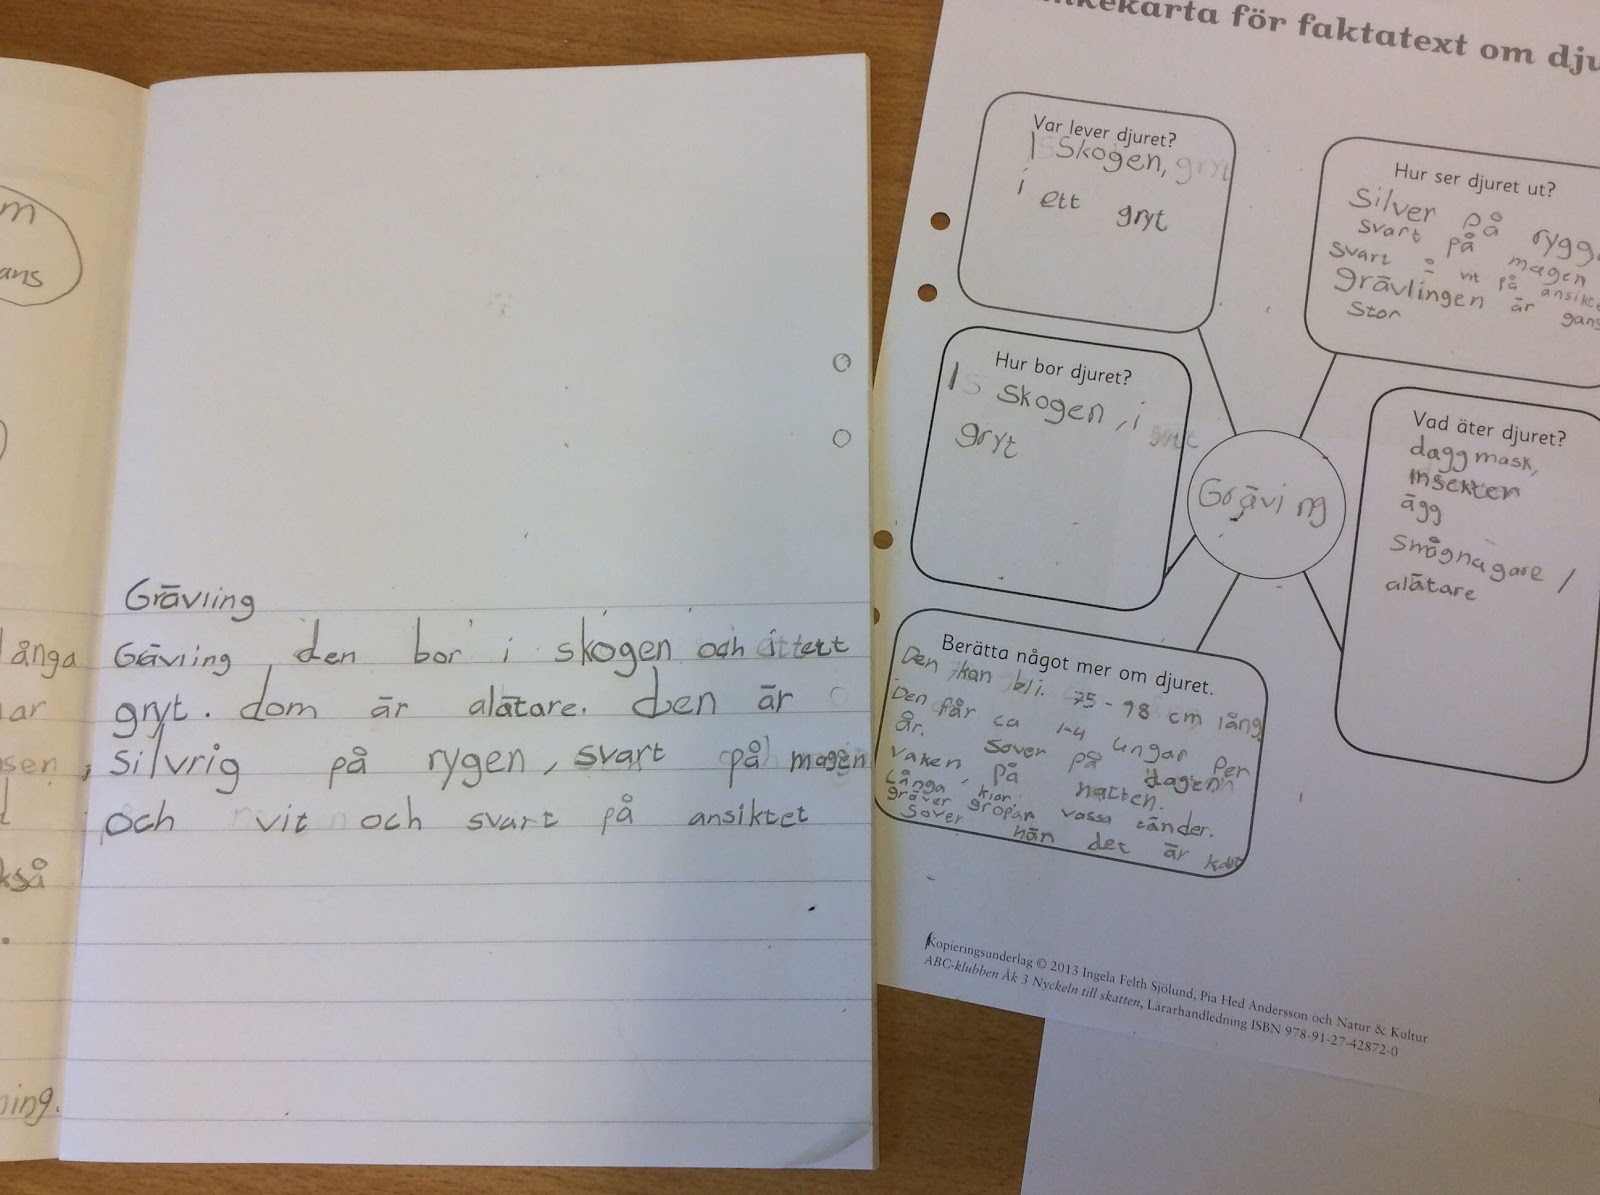 m
ans
ånga
ar
sen
kså
ning.
Grävling
Grävling den bor i skogen och i ett
gryt. dom är alätare. den är
silvrig på rygen, svart på magen
och vit och svart på ansiktet
nkekarta för faktatext om dju
Var lever djuret?
I Skogen,
i ett gryt
Hur ser djuret ut?
Silver på rygg
svart på magen
svart å vit på ansikt
grävlingen är gans
stor
Hur bor djuret?
I skogen, i
gryt
Vad äter djuret?
daggmask,
insekter
ägg
Smågnagare /
alätare
Gräving
Berätta något mer om djuret.
Den kan bli. 75-98 cm lång
Den får ca 1-4 ungar per
år. Sover på dagen
vaken på natten.
Långa klor. vassa tänder.
gräver gropar
Sover när det är kallt
Kopieringsunderlag © 2013 Ingela Felth Sjölund, Pia Hed Andersson och Natur & Kultur
ABC-klubben Åk 3 Nyckeln till skatten, Lärarhandledning ISBN 978-91-27-42872-0